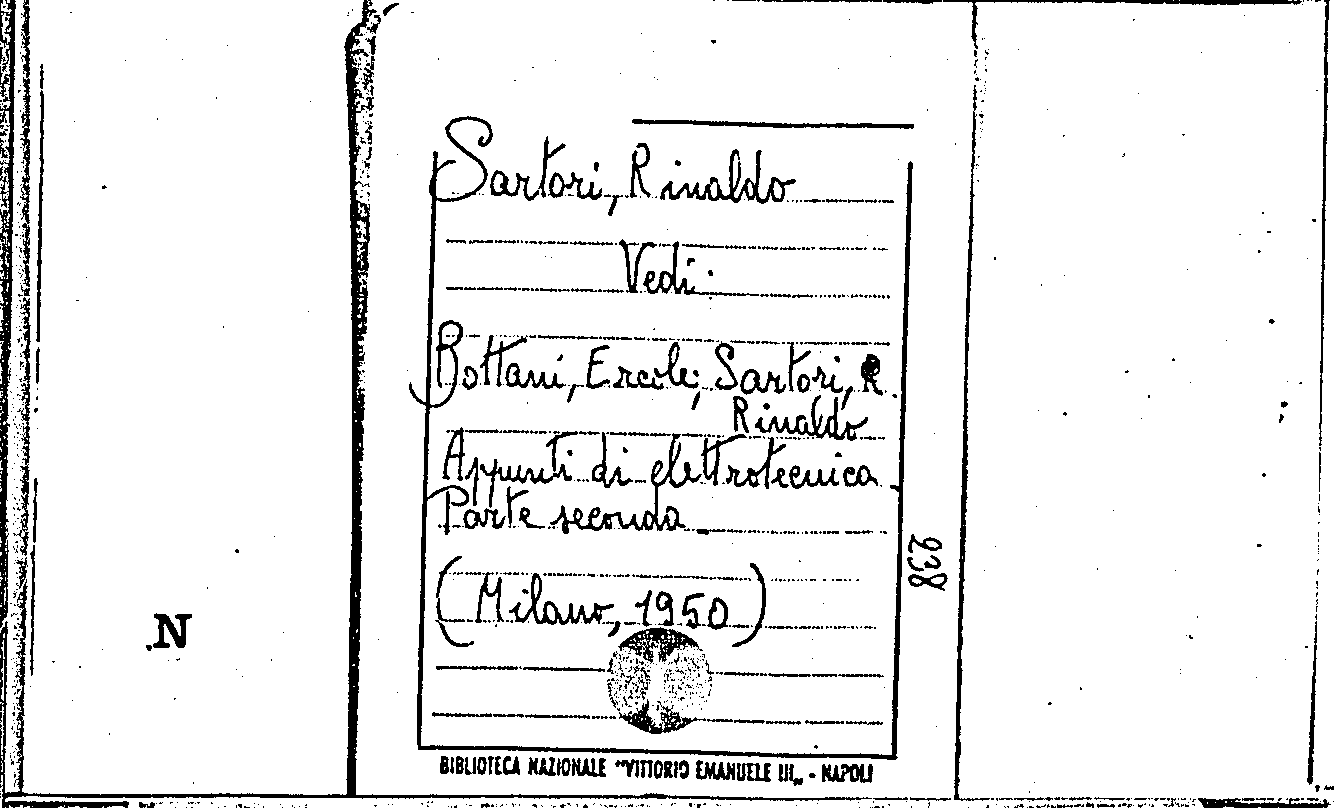 Sartori, Rinaldo
Vedi:
Bottani, Ercole; Sartori, R
Rinaldo
Appunti di elettrotecnica
Parte seconda
(Milano, 1950)
238
.N
BIBLIOTECA NAZIONALE "VITTORIO EMANUELE III„ - NAPOLI